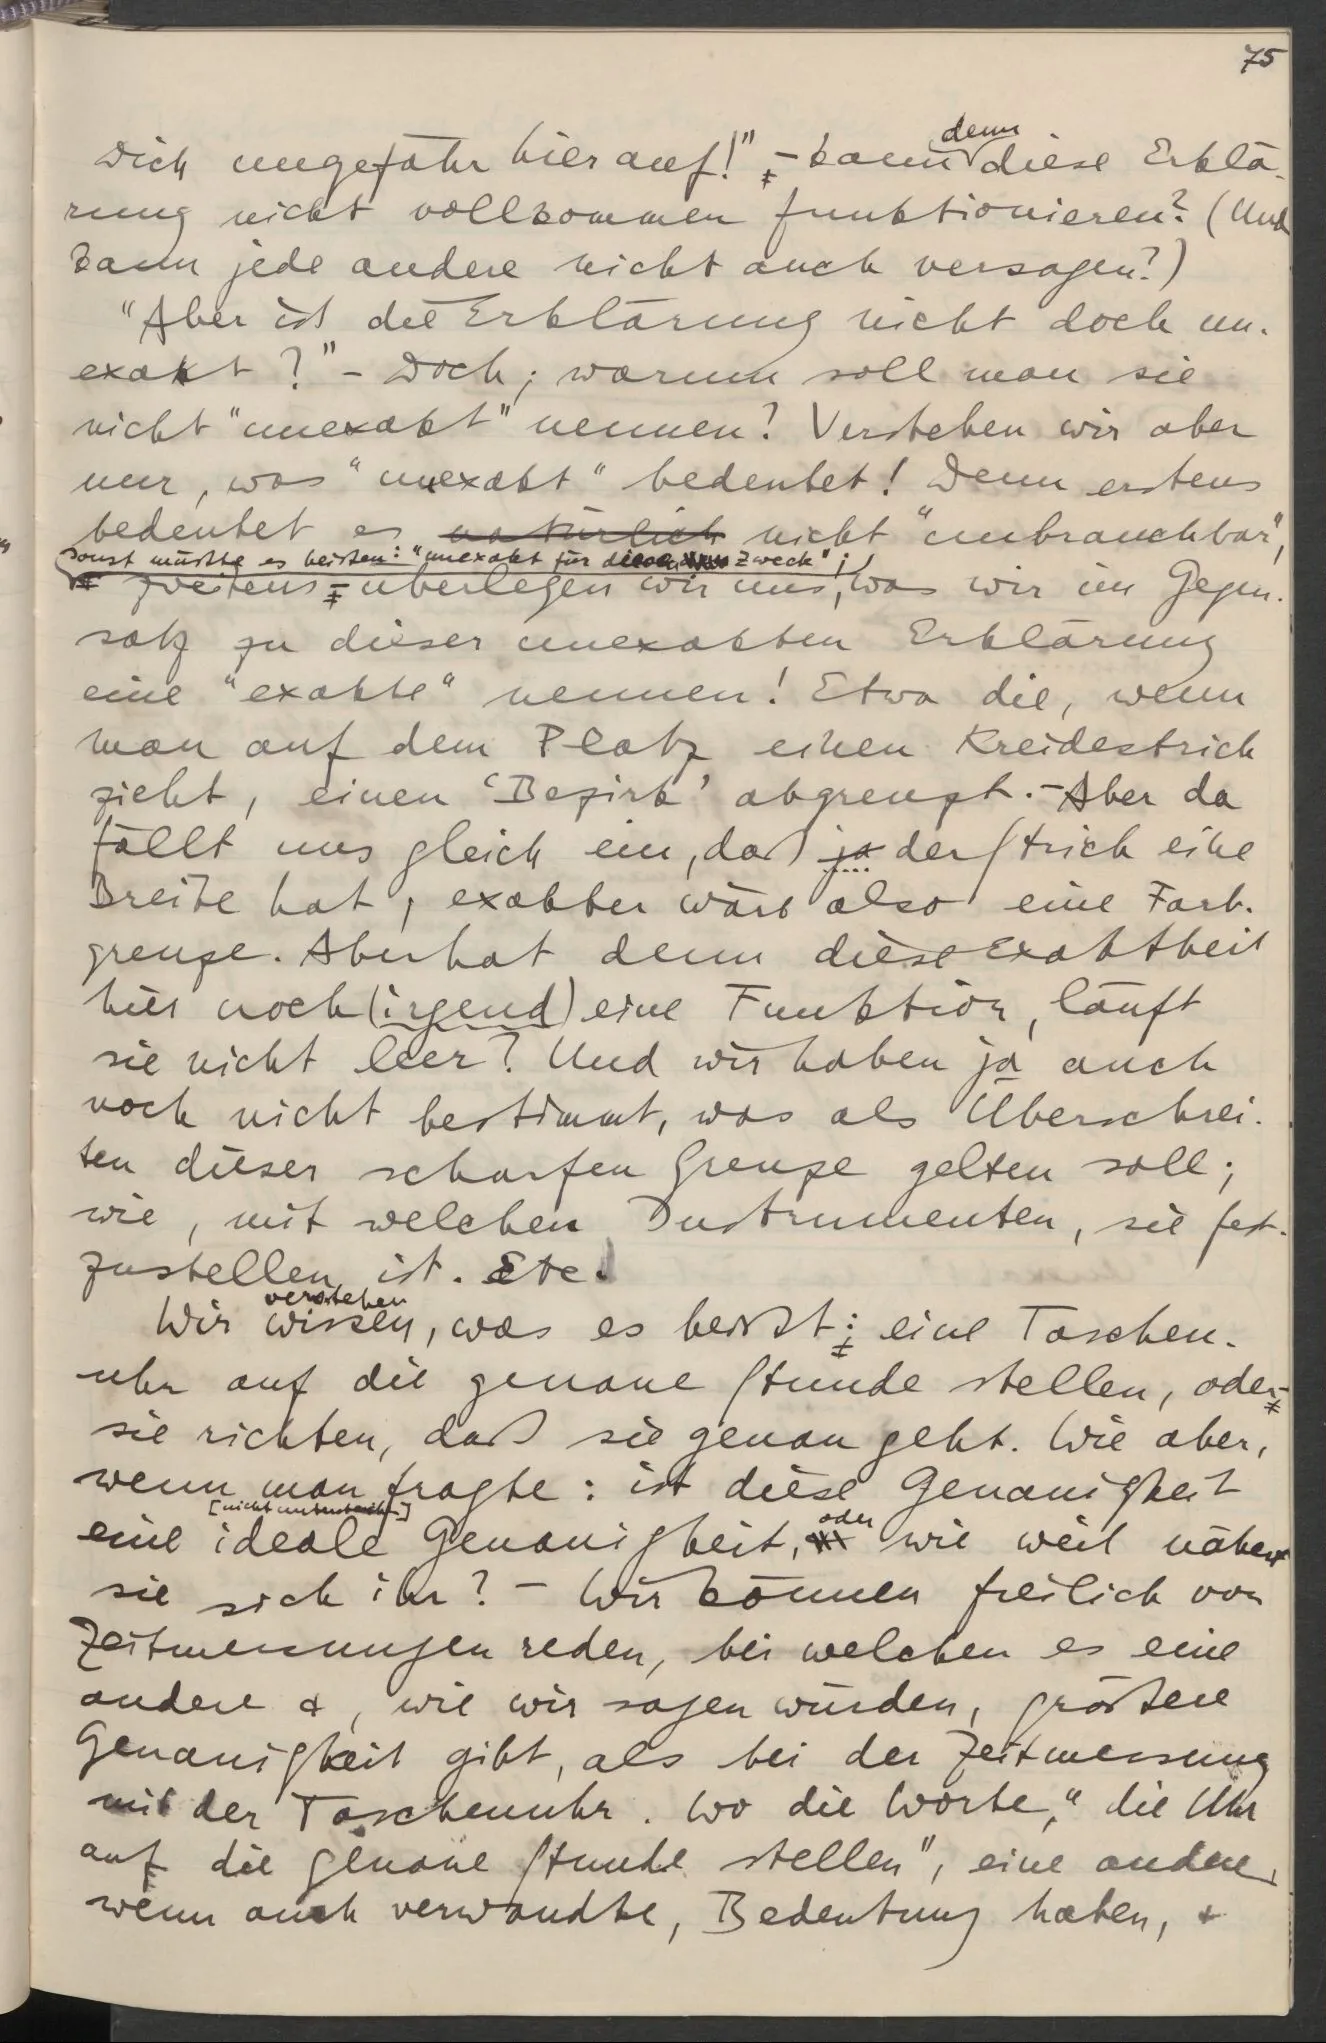 75
denn
Dich ungefähr hier auf!", – kann diese Erklä-
rung nicht vollkommen funktionieren? (Und
kann jede andere nicht auch versagen?)
"Aber ist die Erklärung nicht doch un-
exakt?" – Doch; warum soll man sie
nicht "unexakt" nennen? Verstehen wir aber
nur, was "unexakt" bedeutet! Denn erstens
bedeutet es natürlich nicht "unbrauchbar",
sonst müßte es heißen: "unexakt für diesen Zweck";
& zweitens – überlegen wir uns, was wir im Gegen-
satz zu dieser unexakten Erklärung
eine "exakte" nennen! Etwa die, wenn
man auf dem Platz einen Kreidestrich
zieht, einen 'Bezirk' abgrenzt. – Aber da
fällt uns gleich ein, daß ja der Strich eine
Breite hat; exakter wäre also eine Farb-
grenze. Aber hat denn diese Exaktheit
hier noch (irgend) eine Funktion, läuft
sie nicht leer? Und wir haben ja auch
noch nicht bestimmt, was als Überschrei-
ten dieser scharfen Grenze gelten soll;
wie, mit welchen Instrumenten, sie fest-
zustellen ist. Etc.
verstehen
Wir wissen, was es heißt: eine Taschen-
uhr auf die genaue Stunde stellen, oder
sie richten, daß sie genau geht. Wie aber,
wenn man fragte: ist diese Genauigkeit
[nicht unterstreichen]
oder
eine ideale Genauigkeit, wie weit nähert
sie sich ihr? – Wir können freilich von
Zeitmessungen reden, bei welchen es eine
andere &, wie wir sagen würden, größere
Genauigkeit gibt, als bei der Zeitmessung
mit der Taschenuhr. Wo die Worte, "die Uhr
auf die genaue Stunde stellen", eine andere,
wenn auch verwandte, Bedeutung haben, &